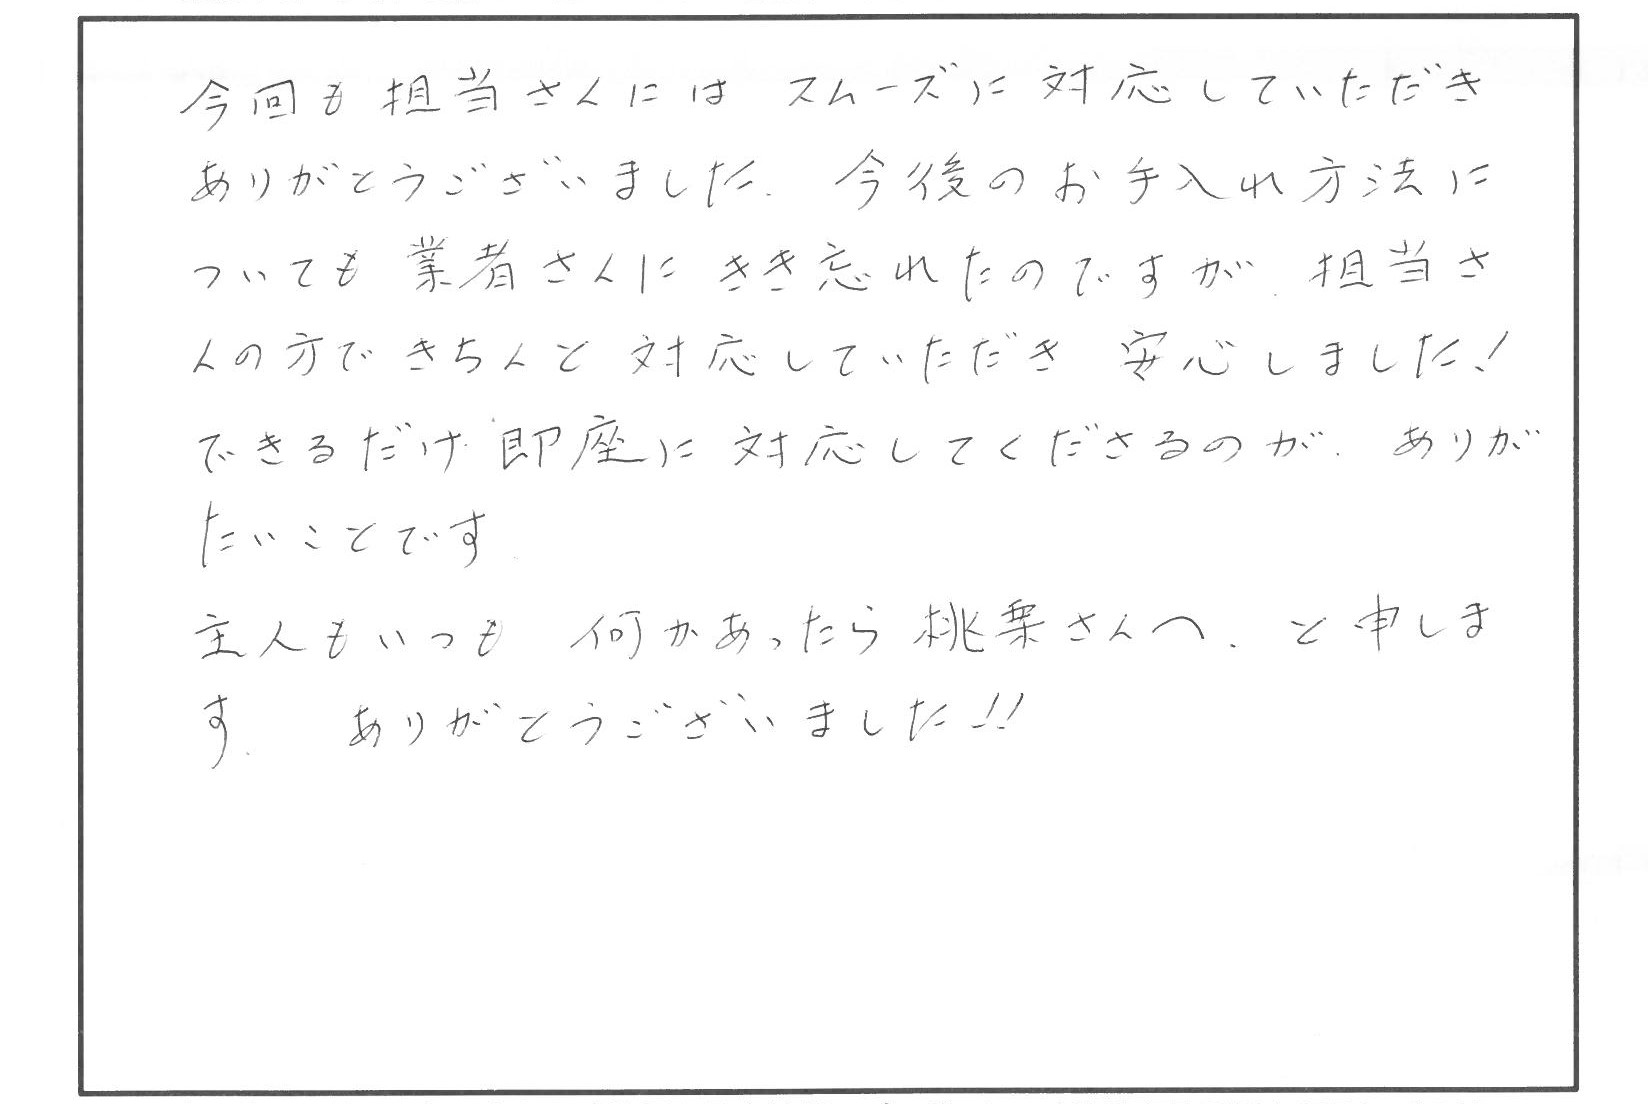 今回も担当さんには スムーズに対応していただき
ありがとうございました. 今後のお手入れ方法に
ついても業者さんにきき忘れたのですが. 担当さ
んの方できちんと対応していただき 安心しました!
できるだけ即座に対応してくださるのが. ありが
たいことです
主人もいつも 何かあったら桃栗さんへ. と申しま
す. ありがとうございました!!